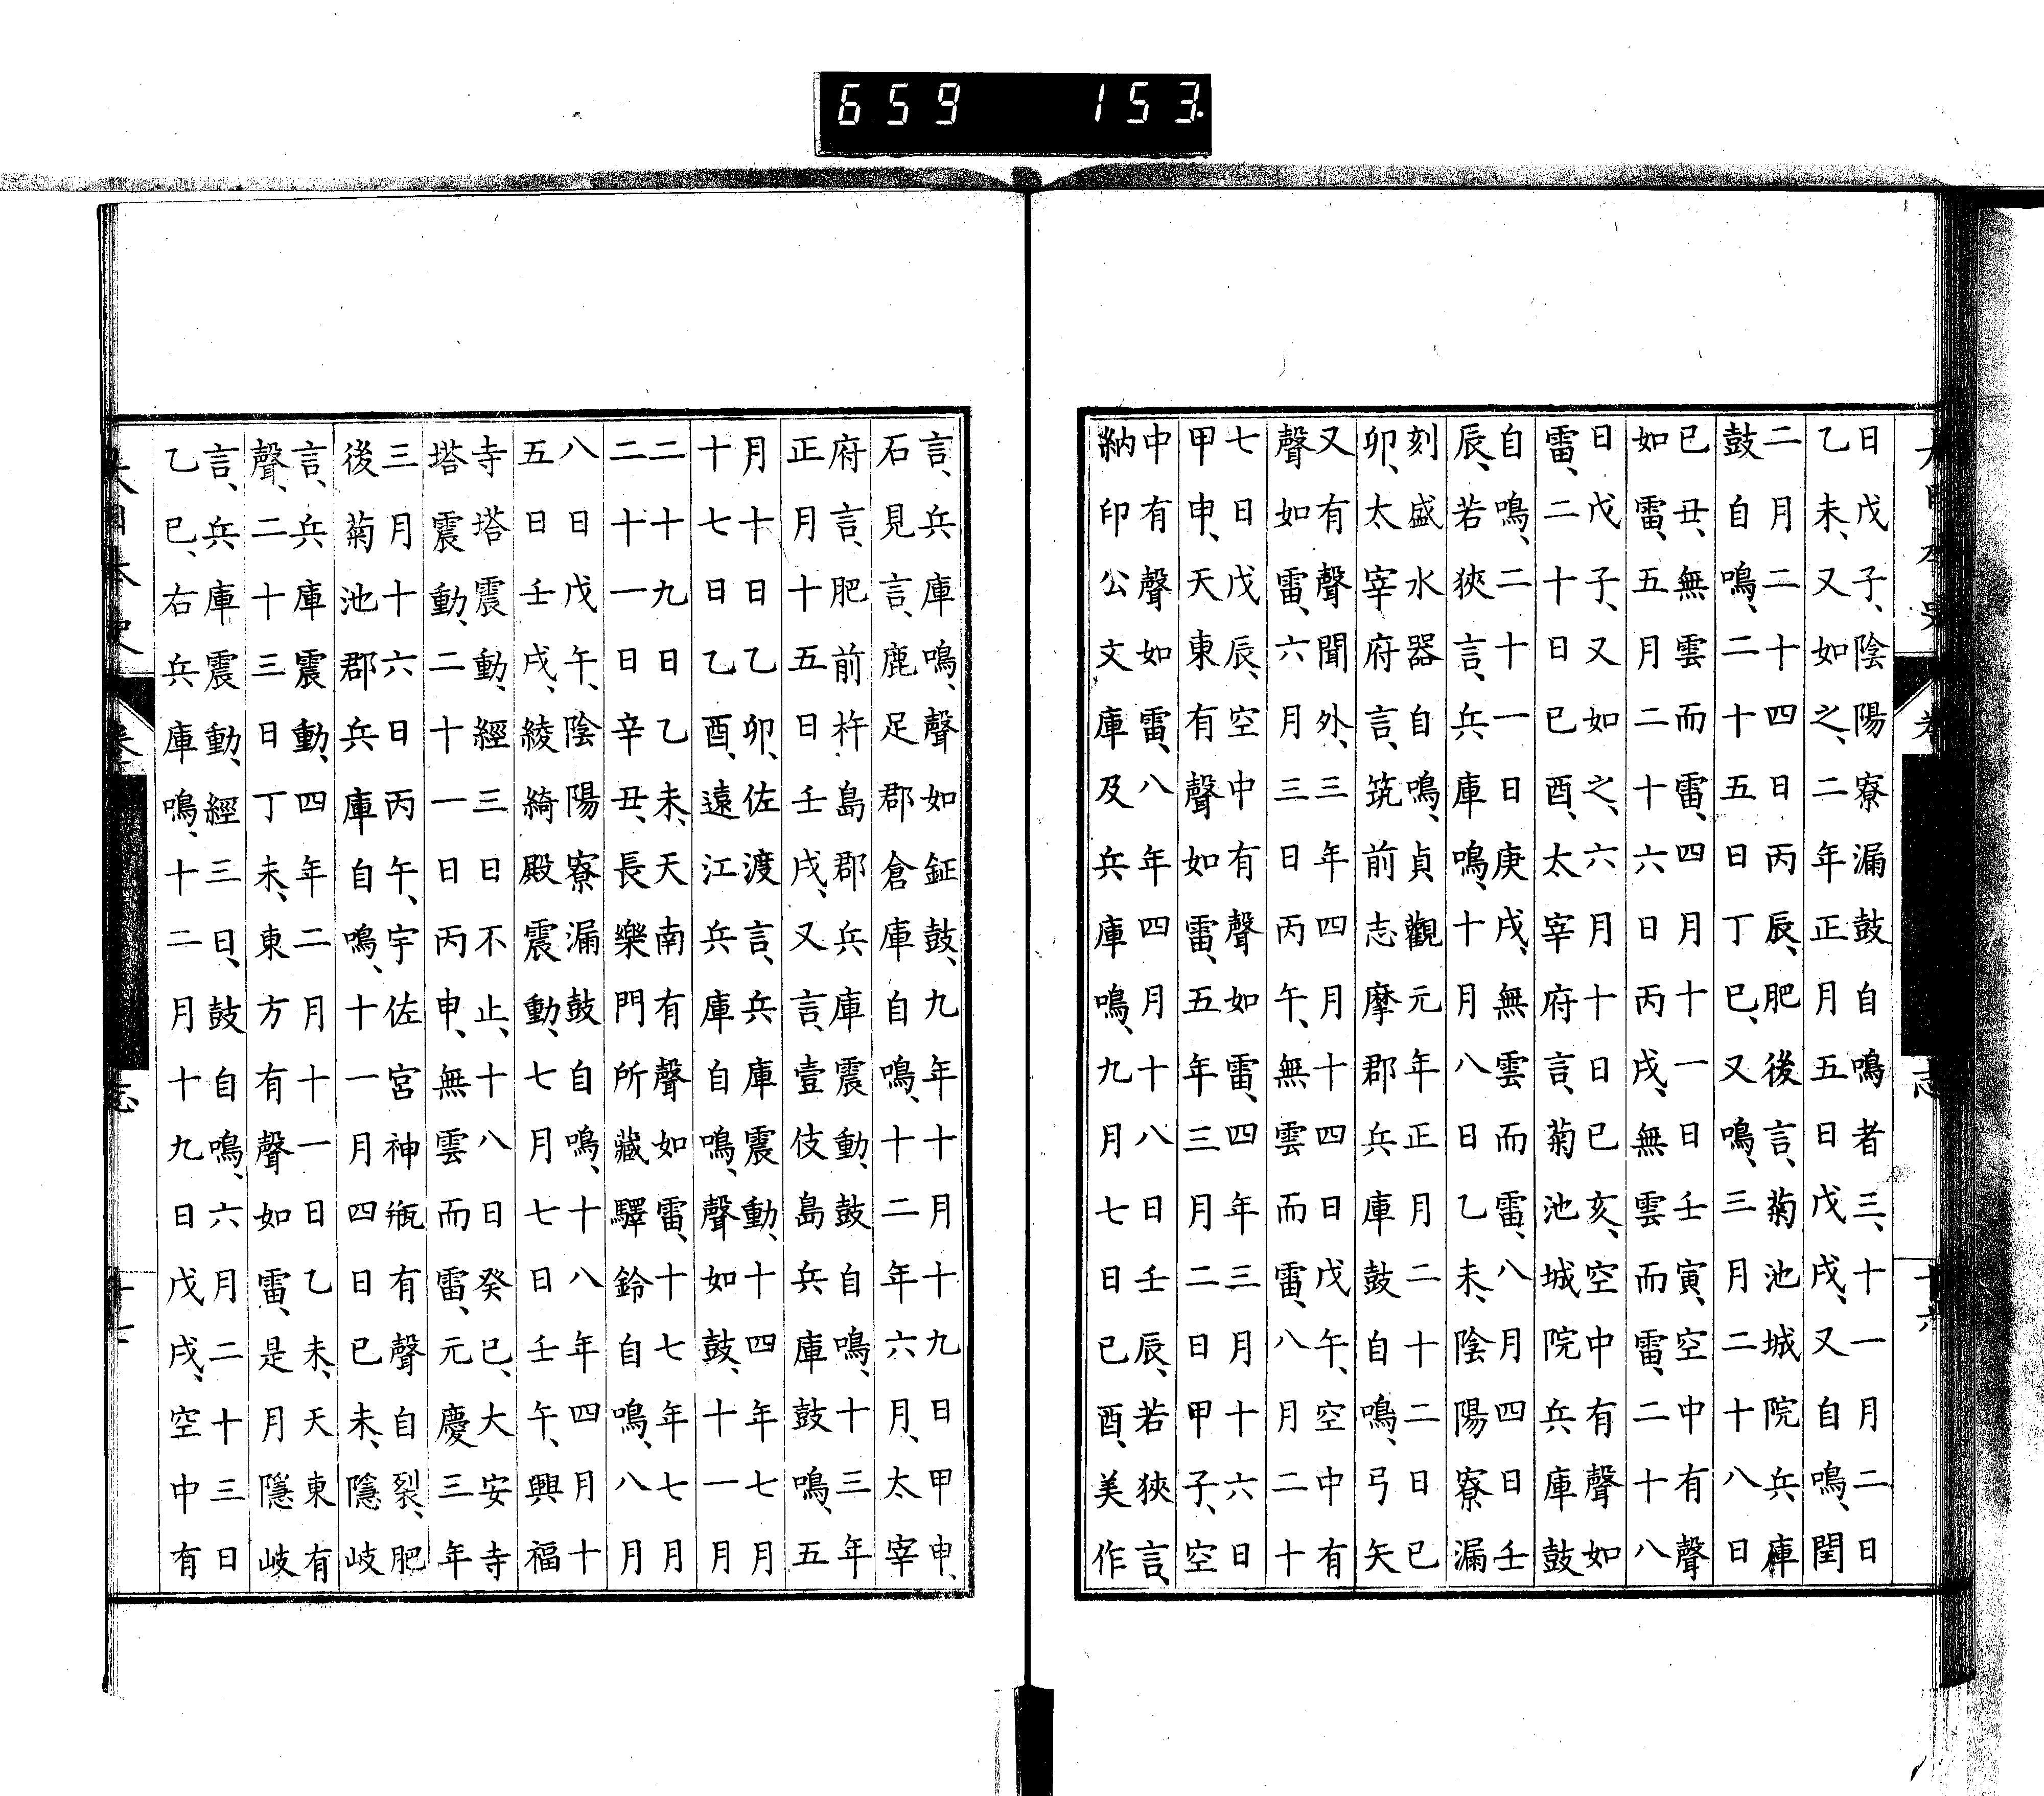 659 153
日戊子、陰陽寮漏鼓自鳴者三、十一月二日
乙未、又如之、二年正月五日戊戌、又自鳴、閏
二月二十四日丙辰、肥後言、菊池城院兵庫
鼓自鳴、二十五日丁巳、又鳴、三月二十八日
已丑、無雲而雷、四月十一日壬寅、空中有聲
如雷、五月二十六日丙戌、無雲而雷、二十八
日戊子、又如之、六月十日已亥、空中有聲如
雷、二十日已酉、太宰府言、菊池城院兵庫鼓
自鳴、二十一日庚戌、無雲而雷、八月四日壬
辰、若狹言、兵庫鳴、十月八日乙未、陰陽寮漏
刻盛水器自鳴、貞觀元年正月二十二日已
卯、太宰府言、筑前志摩郡兵庫鼓自鳴、弓矢
又有聲聞外、三年四月十四日戊午、空中有
聲如雷、六月三日丙午、無雲而雷、八月二十
七日戊辰、空中有聲如雷、四年三月十六日
甲申、天東有聲如雷、五年三月二日甲子、空
中有聲如雷、八年四月十八日壬辰、若狹言、
納印公文庫及兵庫鳴、九月七日已酉、美作
言、兵庫鳴、聲如鉦鼓、九年十月十九日甲申、
石見言、鹿足郡倉庫自鳴、十二年六月、太宰
府言、肥前杵島郡兵庫震動、鼓自鳴、十三年
正月十五日壬戌、又言、壹伎島兵庫鼓鳴、五
月十日乙卯、佐渡言、兵庫震動、十四年七月
十七日乙酉、遠江兵庫自鳴、聲如鼓、十一月
二十九日乙未、天南有聲如雷、十七年七月
二十一日辛丑、長樂門所藏驛鈴自鳴、八月
八日戊午、陰陽寮漏鼓自鳴、十八年四月十
五日壬戌、綾綺殿震動、七月七日壬午、興福
寺塔震動、經三日不止、十八日癸巳、大安寺
塔震動、二十一日丙申、無雲而雷、元慶三年
三月十六日丙午、宇佐宮神瓶有聲自裂、肥
後菊池郡兵庫自鳴、十一月四日已未、隱岐
言、兵庫震動、四年二月十一日乙未、天東有
聲、二十三日丁未、東方有聲如雷、是月隱岐
言、兵庫震動、經三日、鼓自鳴、六月二十三日
乙巳、右兵庫鳴、十二月十九日戊戌、空中有